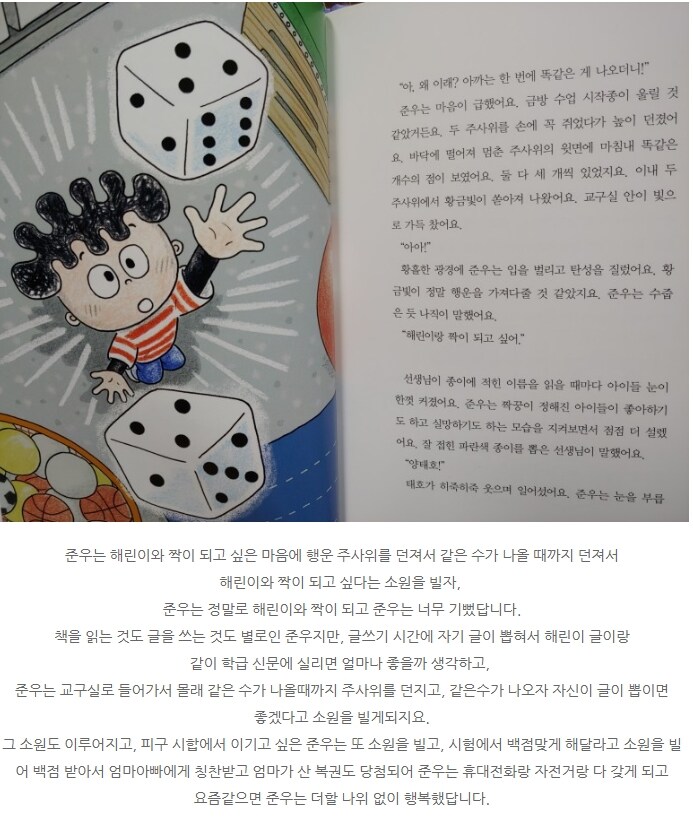 “아, 왜 이래? 아까는 한 번에 똑같은 게 나오더니!”
준우는 마음이 급했어요. 금방 수업 시작종이 울릴 것
같았거든요. 두 주사위를 손에 꼭 쥐었다가 높이 던졌어
요. 바닥에 떨어져 멈춘 주사위의 윗면에 마침내 똑같은
개수의 점이 보였어요. 둘 다 세 개씩 있었지요. 이내 두
주사위에서 황금빛이 쏟아져 나왔어요. 교구실 안이 빛으
로 가득 찼어요.
“아아!”
황홀한 광경에 준우는 입을 벌리고 탄성을 질렀어요. 황
금빛이 정말 행운을 가져다줄 것 같았지요. 준우는 수줍
은 듯 나직이 말했어요.
“해린이랑 짝이 되고 싶어.”
선생님이 종이에 적힌 이름을 읽을 때마다 아이들 눈이
한껏 커졌어요. 준우는 짝꿍이 정해진 아이들이 좋아하기
도 하고 실망하기도 하는 모습을 지켜보면서 점점 더 설렜
어요. 잘 접힌 파란색 종이를 뽑은 선생님이 말했어요.
“양태호!”
태호가 히죽히죽 웃으며 일어섰어요. 준우는 눈을 부릅
준우는 해린이와 짝이 되고 싶은 마음에 행운 주사위를 던져서 같은 수가 나올 때까지 던져서
해린이와 짝이 되고 싶다는 소원을 빌자,
준우는 정말로 해린이와 짝이 되고 준우는 너무 기뻤답니다.
책을 읽는 것도 글을 쓰는 것도 별로인 준우지만, 글쓰기 시간에 자기 글이 뽑혀서 해린이 글이랑
같이 학급 신문에 실리면 얼마나 좋을까 생각하고,
준우는 교구실로 들어가서 몰래 같은 수가 나올때까지 주사위를 던지고, 같은수가 나오자 자신이 글이 뽑이면
좋겠다고 소원을 빌게되지요.
그 소원도 이루어지고, 피구 시합에서 이기고 싶은 준우는 또 소원을 빌고, 시험에서 백점맞게 해달라고 소원을 빌
어 백점 받아서 엄마아빠에게 칭찬받고 엄마가 산 복권도 당첨되어 준우는 휴대전화랑 자전거랑 다 갖게 되고
요즘같으면 준우는 더할 나위 없이 행복했답니다.